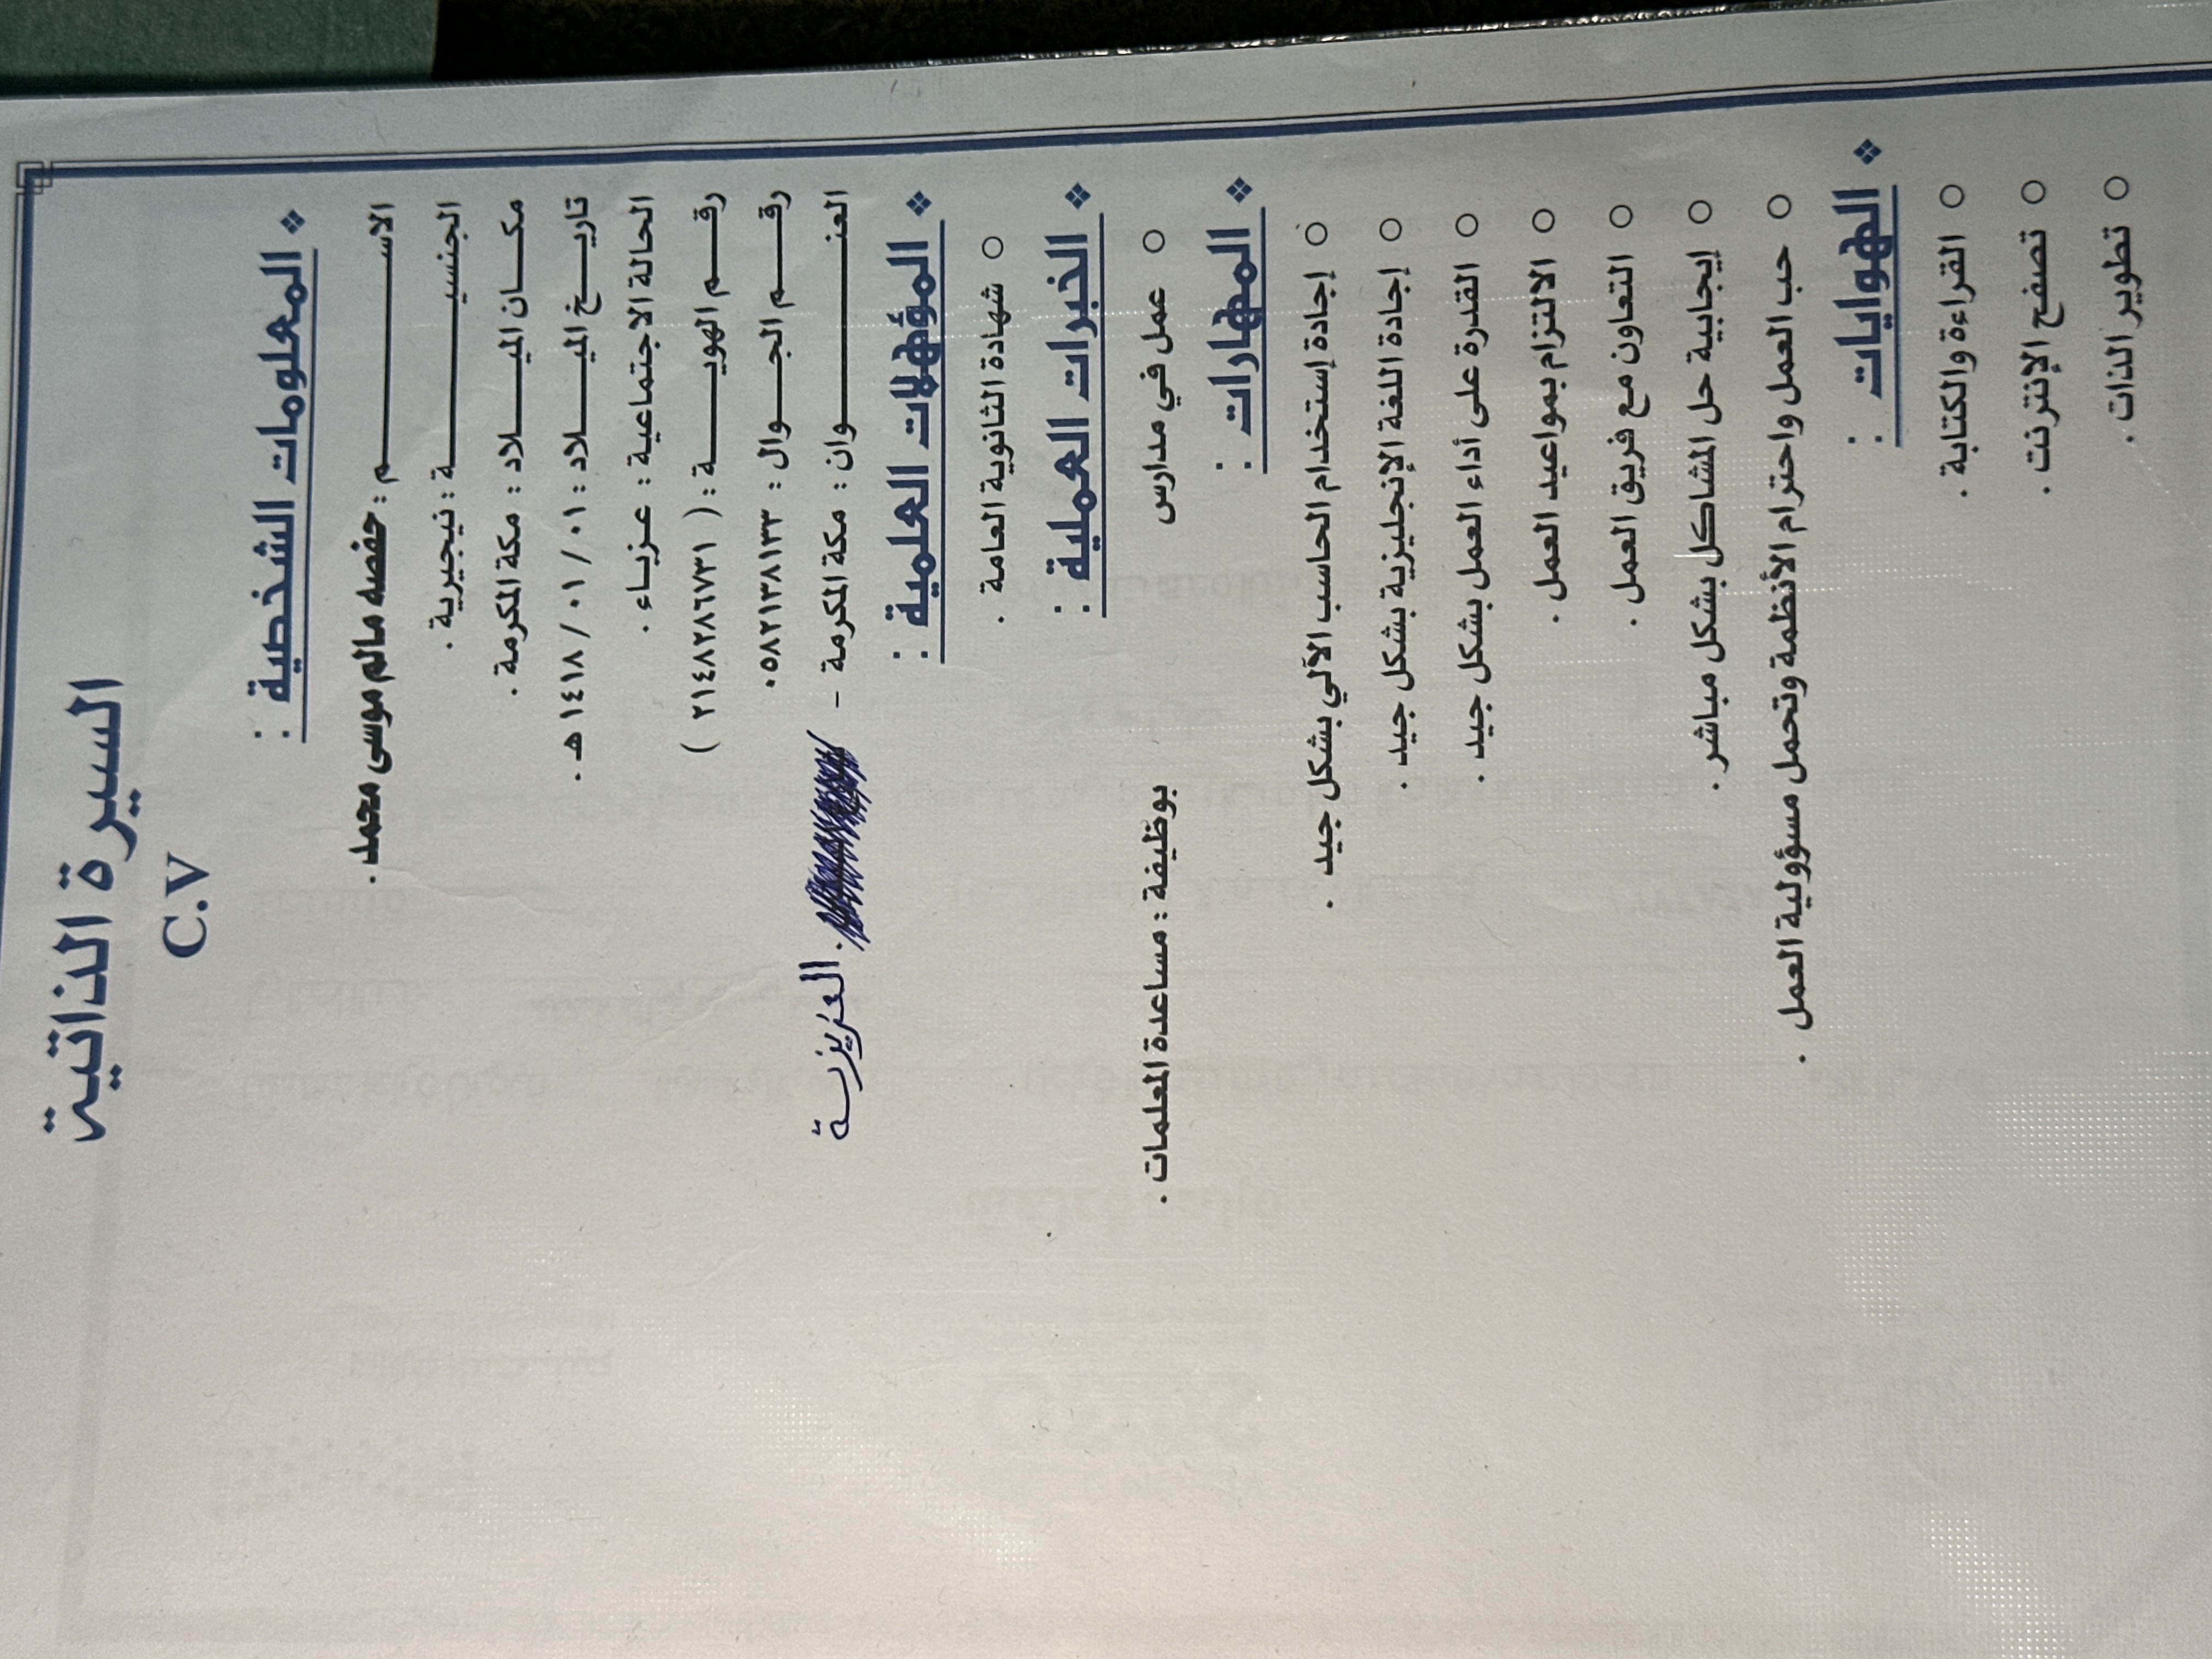 السيرة الذاتية
C.V
❖ المعلومات الشخصية :
الاســــــــــــم : حفصه مالم موسى محمد .
الجنسيــــــــــة : نيجيرية .
مكـــان الميـــلاد : مكة المكرمة .
تاريـــخ الميـــلاد : ٠١ / ٠١ / ١٤١٨ هـ .
الحالة الاجتماعية : عزباء .
رقـــم الهويـــــة : ( ٢١٤٨٢٨٦٧٣١ )
رقـــم الجـــوال : ٠٥٨٢١٣٨١٣٣
العنـــــــــوان : مكة المكرمة – . العزيزية
❖ المؤهلات العلمية :
○ شهادة الثانوية العامة .
❖ الخبرات العملية :
○ عمل في مدارس بوظيفة : مساعدة المعلمات .
❖ المهارات :
○ إجادة إستخدام الحاسب الآلي بشكل جيد .
○ إجادة اللغة الإنجليزية بشكل جيد .
○ القدرة على أداء العمل بشكل جيد .
○ الالتزام بمواعيد العمل .
○ التعاون مع فريق العمل .
○ إيجابية حل المشاكل بشكل مباشر .
○ حب العمل واحترام الأنظمة وتحمل مسؤولية العمل .
❖ الهوايات :
○ القراءة والكتابة .
○ تصفح الإنترنت .
○ تطوير الذات .